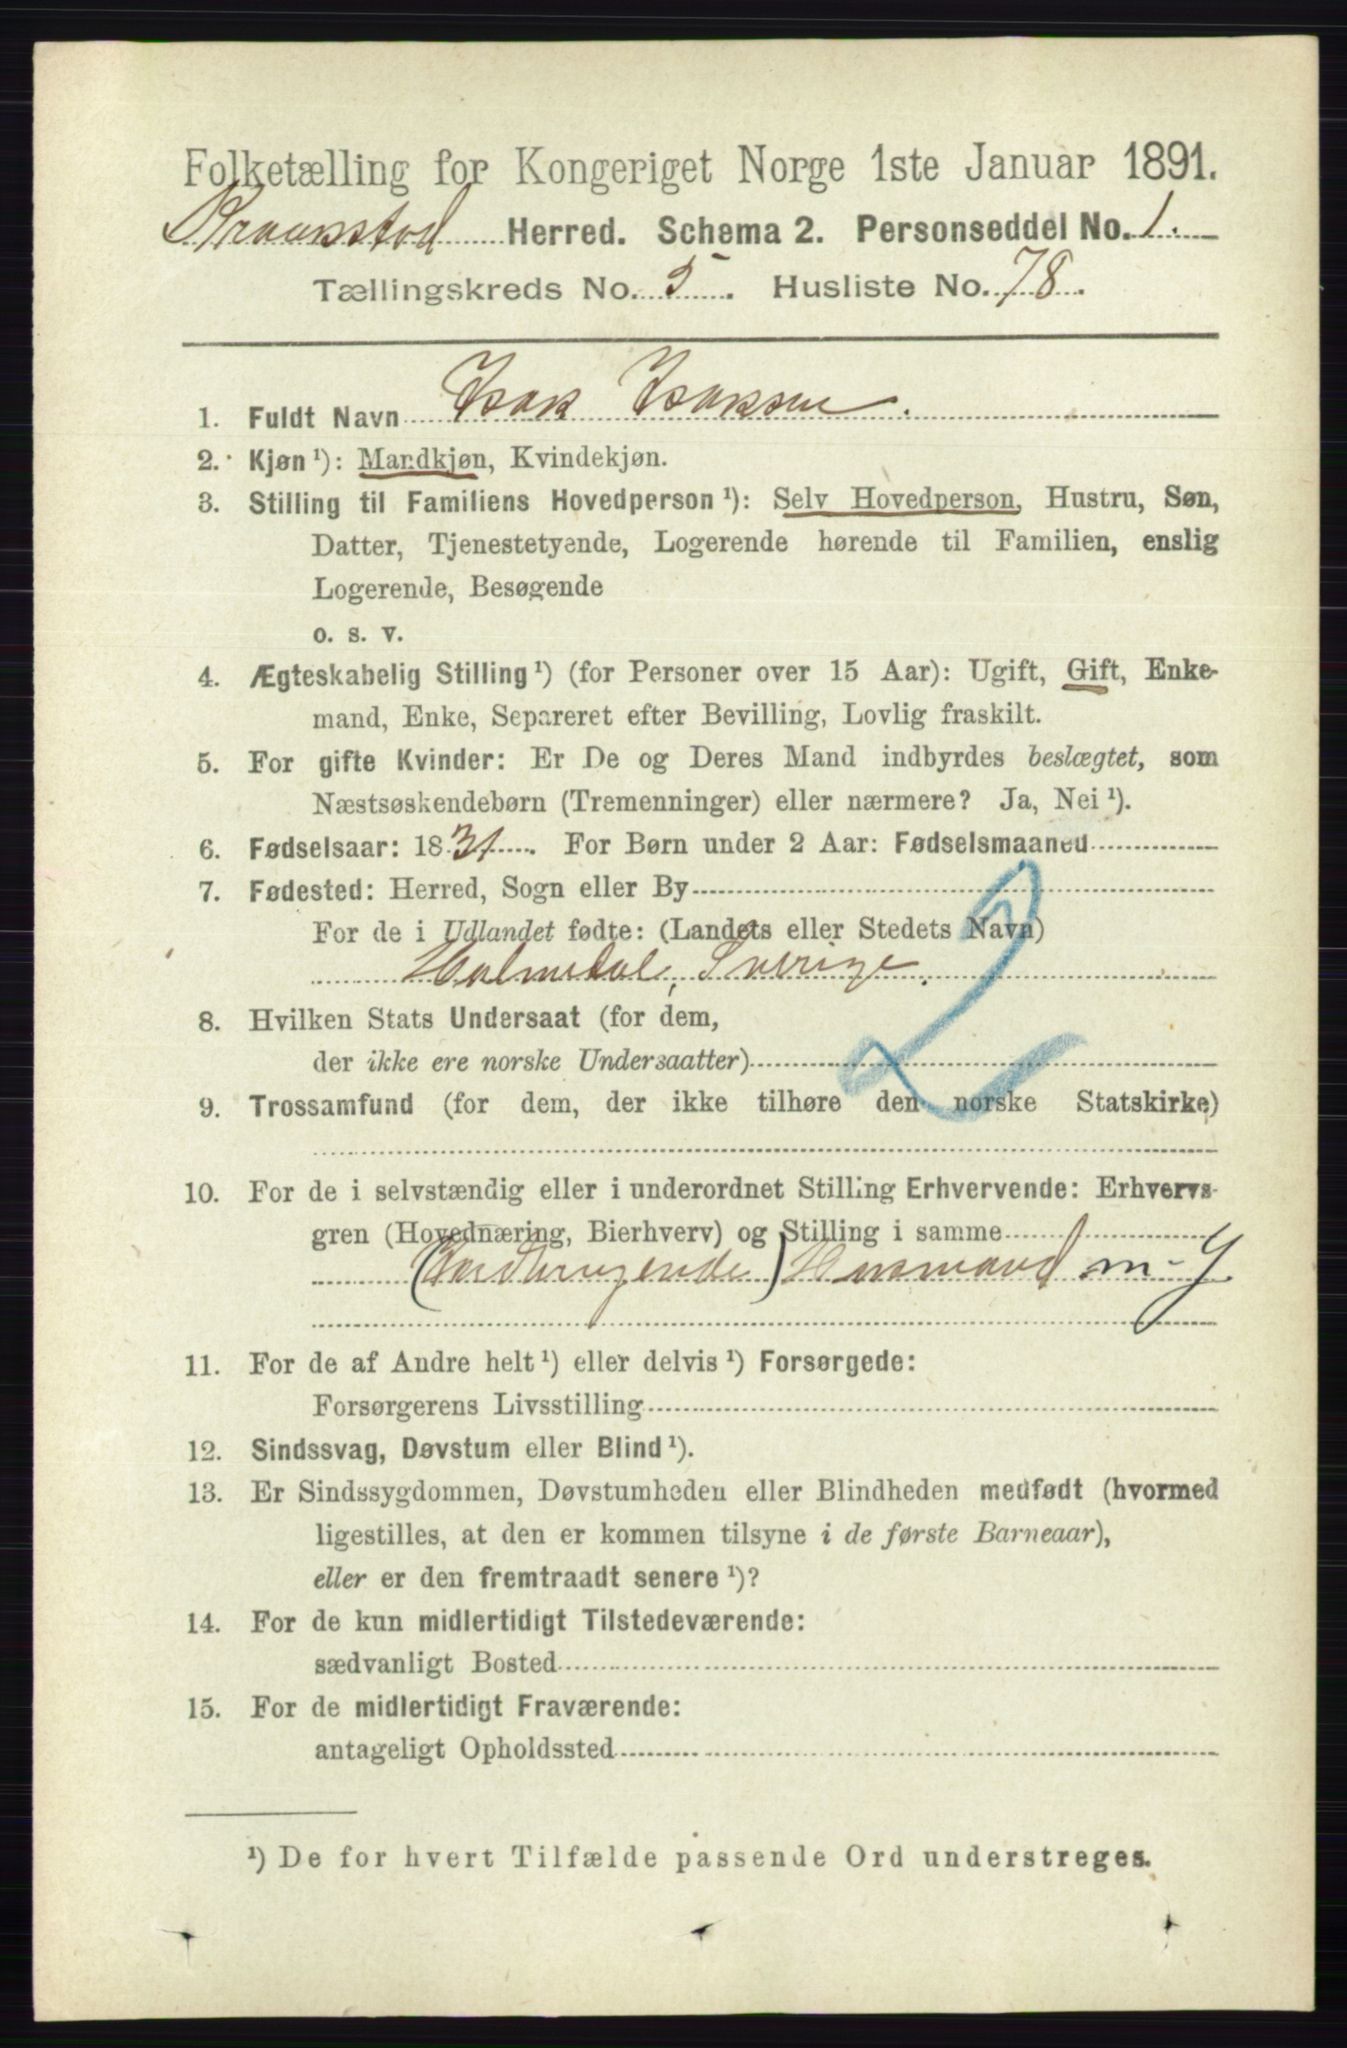 Folketælling for Kongeriget Norge 1ste Januar 1891.
Kraakstad Herred. Schema 2. Personseddel No. 1.
Tællingskreds No. 5. Husliste No. 78.
1. Fuldt Navn Isak Isaksen.
2. Kjøn ¹): Mandkjøn, Kvindekjøn.
3. Stilling til Familiens Hovedperson ¹): Selv Hovedperson, Hustru, Søn,
Datter, Tjenestetyende, Logerende hørende til Familien, enslig
Logerende, Besøgende
o. s. v.
4. Ægteskabelig Stilling ¹) (for Personer over 15 Aar): Ugift, Gift, Enke-
mand, Enke, Separeret efter Bevilling, Lovlig fraskilt.
5. For gifte Kvinder: Er De og Deres Mand indbyrdes beslægtet, som
Næstsøskendebørn (Tremenninger) eller nærmere? Ja, Nei ¹).
6. Fødselsaar: 1831. For Børn under 2 Aar: Fødselsmaaned
7. Fødested: Herred, Sogn eller By
For de i Udlandet fødte: (Landets eller Stedets Navn)
Holmedal, Sverige.
2
8. Hvilken Stats Undersaat (for dem,
der ikke ere norske Undersaatter)
9. Trossamfund (for dem, der ikke tilhøre den norske Statskirke)
10. For de i selvstændig eller i underordnet Stilling Erhvervende: Erhvervs-
gren (Hovednæring, Bierhverv) og Stilling i samme
(Jordbrugende) Husmand m. J.
11. For de af Andre helt ¹) eller delvis ¹) Forsørgede:
Forsørgerens Livsstilling
12. Sindssvag, Døvstum eller Blind ¹).
13. Er Sindssygdommen, Døvstumheden eller Blindheden medfødt (hvormed
ligestilles, at den er kommen tilsyne i de første Barneaar),
eller er den fremtraadt senere ¹)?
14. For de kun midlertidigt Tilstedeværende:
sædvanligt Bosted
15. For de midlertidigt Fraværende:
antageligt Opholdssted
¹) De for hvert Tilfælde passende Ord understreges.